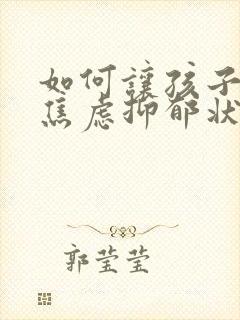 如何讓孩子
焦慮抑郁狀
郭莹莹